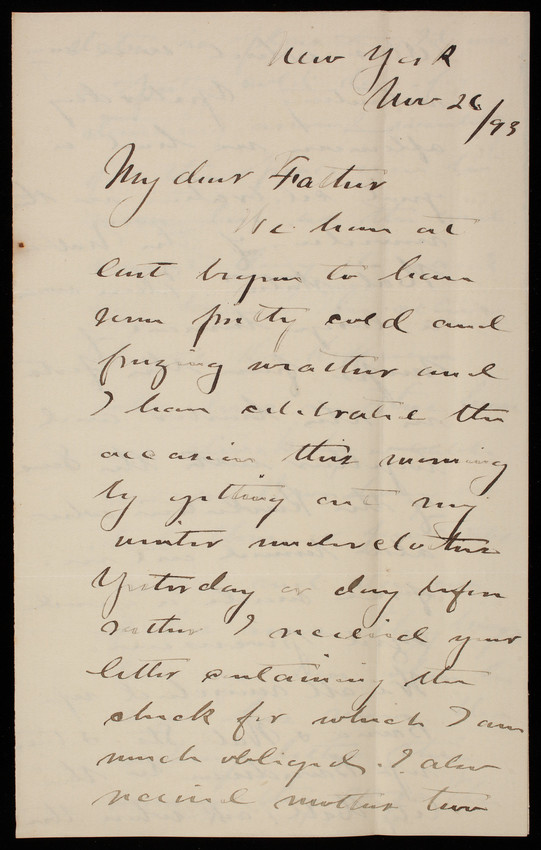 New York
Nov 26/93
My dear Father
We have at
last begun to have
some pretty cold and
freezing weather and
I have celebrated the
occasion this morning
by getting out my
winter underclothes
Yesterday or day before
rather I received your
letter containing the
check for which I am
much obliged. I also
received mother two